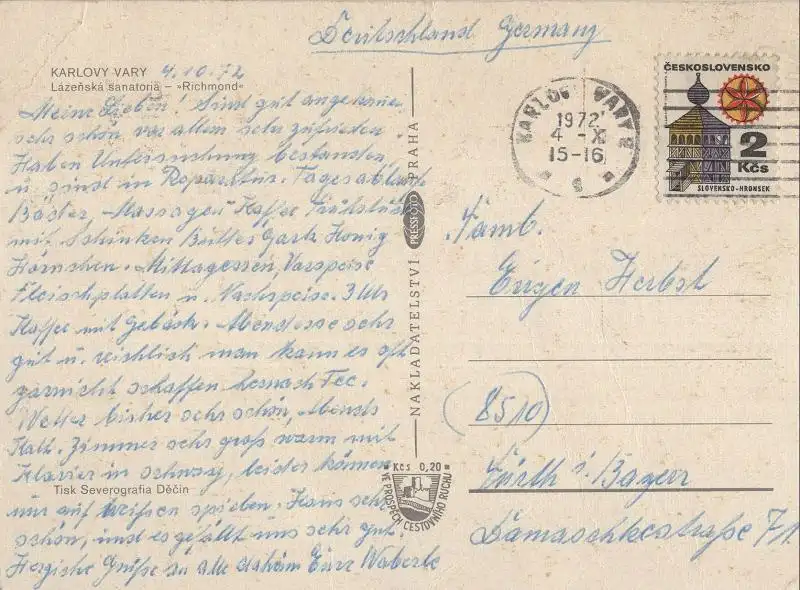 Deutschland Germany
KARLOVY VARY 4.10.72
Lázeňská sanatoria – »Richmond«
Meine Lieben! Sind gut angekomen,
sehr schön vor allem sehr zufrieden.
Haben Untersuchung bestanden
u. sind in Reparatur. Tagesablauf
Bäder, Massagen Kaffee Frühstück
mit Schinken Butter Honig
Hörnchen. Mittagessen, Vorspeise
Fleischplatten u. Nachspeise. 3 Uhr
Kaffee mit Gebäck. Abendesse sehr
gut u. reichlich man kann es oft
garnicht schaffen hernach Tee.
Wetter bisher sehr schön, Abends
Kalt. Zimmer sehr groß warm mit
Klavier in schwarz, leider können
Tisk Severografia Děčín
wir auf weißen spielen. Haus sehr
schön, und es gefällt uns sehr gut.
Herzliche Grüße an alle daheim Eure Waberle
NAKLADATELSTVÍ PRESSFOTO PRAHA
Kčs 0,20
VE PROSPĚCH CESTOVNÍHO RUCHU
KARLOVY VARY
1972
4.-X
15-16
ČESKOSLOVENSKO
2
Kčs
SLOVENSKO-HRONSEK
Famb.
Eugen Herbst
(8510)
Fürth i. Bayern
Damaschkestraße 71